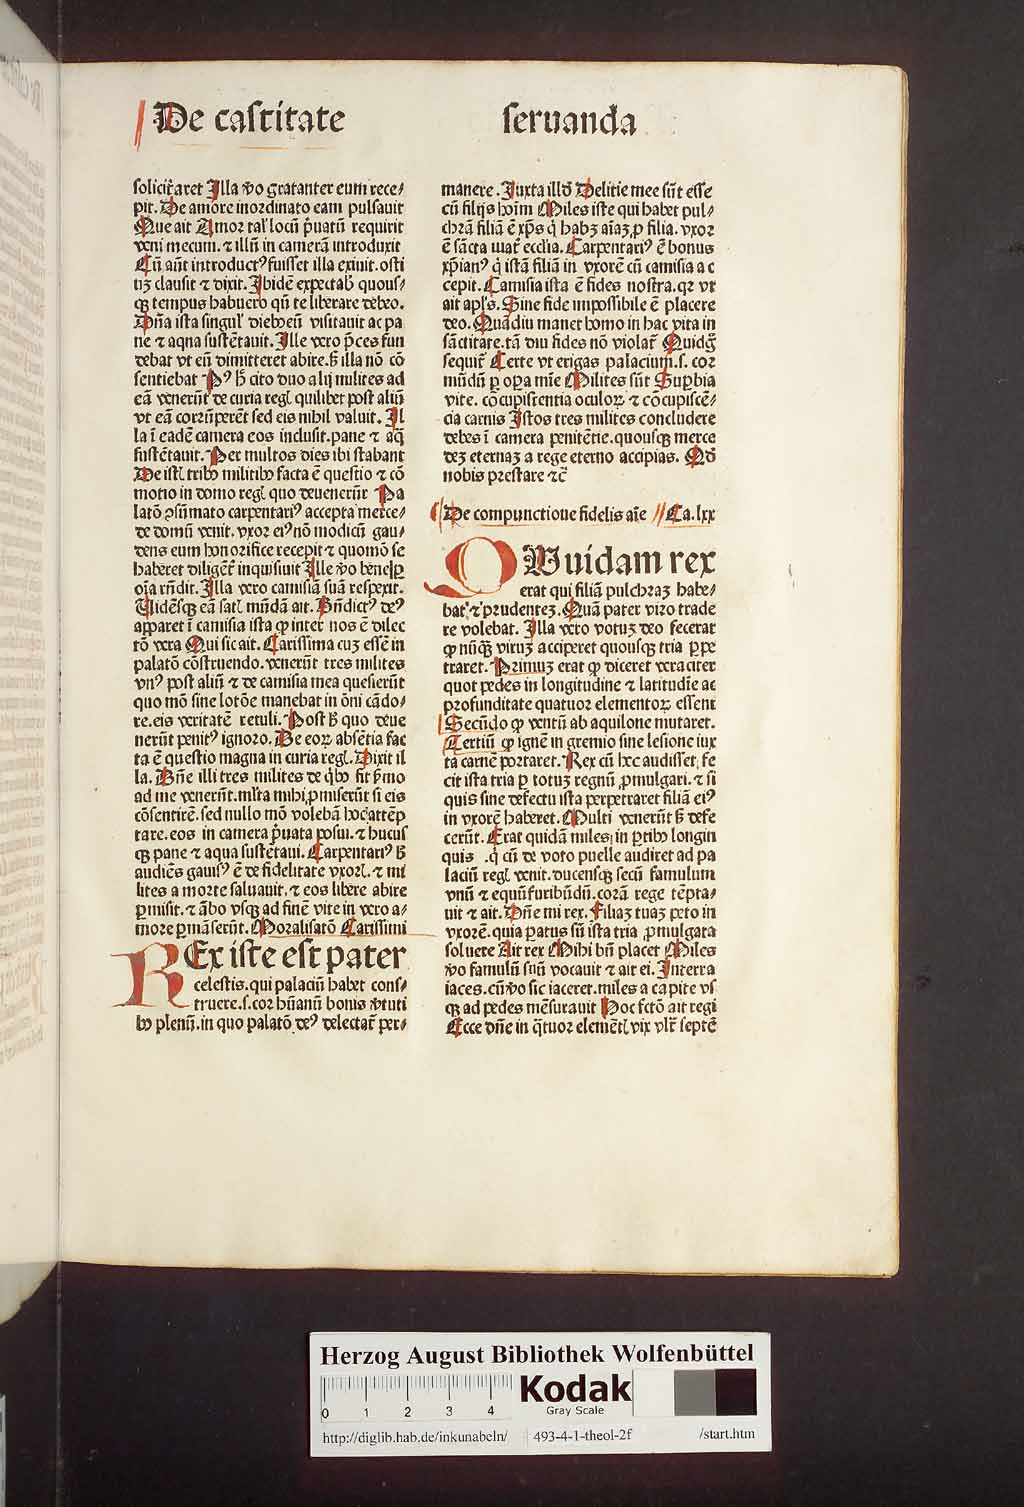 De castitate seruanda
solicitaret Illa v̄o gratanter eum rece⸗
pit. De amore inordinato eam pulsauit
Que ait Amor tal' locū p̄uatū requirit
veni mecum. ⁊ illū in camerā introduxit
Cū aūt introductꝰ fuisset illa exiuit. osti
uꝫ clausit ⁊ dixit. Ibidē expectab̄ quous⸗
qꝫ tempus habuero qn̄ te liberare debeo.
Dn̄a ista singul' diebꝫ eū visitauit ac pa
ne ⁊ aqua sustētauit. Ille vero p̄ces fun
debat vt eū dimitteret abire. s̄ illa nō cō
sentiebat Pꝰ h̄ cito duo alij milites ad
eā venerūt de curia regꝭ quilibet post aliū
vt eā corrūperēt sed eis nihil valuit. Il
la ī eadē camera eos inclusit. pane ⁊ aq̄
sustētauit. Per multos dies ibi stabant
De istꝭ tribꝫ militibꝫ facta ē questio ⁊ cō
motio in domo regꝭ quo deuenerūt Pa
latō ꝯsūmato carpentariꝰ accepta merce⸗
de domū venit. vxor eiꝰ nō modicū gau⸗
dens eum honorifice recepit ⁊ quomō se
haberet diligēt̄ inquisiuit Ille v̄o bene ꝑ
oīa rn̄dit. Illa vero camisiā suā respexit.
Uidēsqꝫ eā satꝭ mūdā ait. Bn̄dictꝰ deꝰ
apparet ī camisia ista ꝙ inter nos ē dilec
tō vera Qui sic ait. Carissima cuꝫ essē in
palatō cōstruendo. venerūt tres milites
vnꝰ post aliū ⁊ de camisia mea quesierūt
quo mō sine lotōe manebat in ōni cādo⸗
re. eis veritatē retuli. Post h̄ quo deue
nerūt penitꝰ ignoro. De eoꝝ absētia fac
ta ē questio magna in curia regꝭ. Dixit il
la. Bn̄e illi tres milites de q̄bꝫ fit s̄mo
ad me venerūt. ml̄ta mihi ꝓmiserūt si eis
cōsentirē. sed nullo mō volebā hoc attēp
tare. eos in camera p̄uata posui. ⁊ hucus
qꝫ pane ⁊ aqua sustētaui. Carpentariꝰ h̄
audiēs gauisꝰ ē de fidelitate vxorꝭ. ⁊ mi
lites a morte saluauit. ⁊ eos libere abire
ꝑmisit. ⁊ ābo vsqꝫ ad finē vite in vero a⸗
more ꝑmāserūt. Moralisatō Carissimi
REx iste est pater
celestis. qui palaciū habet cons⸗
truere. s. cor hūanū bonis v̄tuti
bꝫ plenū. in quo palatō deꝰ delectat̄ per⸗
manere. Iuxta illd̄ Delitie mee sūt esse
cū filijs hoīm Miles iste qui habet pul⸗
chrā filiā ē xp̄s q̄ habꝫ aīaꝫ ꝓ filia. vxor
ē sācta mat̄ eccl̄ia. Carpentariꝰ ē bonus
xp̄ianꝰ q̄ istā filiā in vxorē cū camisia a c
cepit. Camisia ista ē fides nostra. qꝛ vt
ait apl's. Sine fide impossibile ē placere
deo. Quādiu manet homo in hac vita in
sāctitate. tā diu fides nō violat̄ Quidg̊
sequit̄ Certe vt erigas palacium. s. cor
mūdū ꝑ oꝑa mīe Milites sūt Suꝑbia
vite. cōcupiscentia oculoꝝ ⁊ cōcupiscē⸗
cia carnis Istos tres milites concludere
debes ī camera penitētie. quousqꝫ merce
deꝫ eternaꝫ a rege eterno accipias. Qd̄
nobis prestare ⁊c̄
De compunctioue fidelis aīe Ca. lxx
QUuidam rex
erat qui filiā pulchraꝫ habe⸗
bat ⁊ prudenteꝫ. Quā pater viro trade
re volebat. Illa vero votuꝫ deo fecerat
ꝙ nūqꝫ viruꝫ acciperet quousqꝫ tria ꝑpe
traret. Primuꝫ erat ꝙ diceret veraciter
quot pedes in longitudine ⁊ latitudīe ac
profunditate quatuor elementoꝝ essent
Secūdo ꝙ ventū ab aquilone mutaret.
Tertiū ꝙ ignē in gremio sine lesione iux
ta carnē portaret. Rex cū hec audisset, fe
cit ista tria ꝑ totuꝫ regnū ꝓmulgari. ⁊ si
quis sine defectu ista perpetraret filiā eiꝰ
in vxorē haberet. Multi venerūt s̄ defe
cerūt. Erat quidā miles in ꝑtibꝫ longin
quis .q̄ cū de voto puelle audiret ad pa
laciū regꝭ venit. ducensqꝫ secū famulum
vnū ⁊ equū furibūdū. corā rege tēpta⸗
uit ⁊ ait. Dn̄e mi rex. Filiaꝫ tuaꝫ peto in
vxorē. quia ꝑatus sū ista tria ꝓmulgata
soluere Ait rex Mihi bn̄ placet Miles
v̄o famulū suū vocauit ⁊ ait ei. In terra
iaces. cūv̄o sic iaceret. miles a capite vs
qꝫ ad pedes mēsurauit Hoc fctō ait regi
Ecce dn̄e in q̄tuor elemētꝭ vix vlt̄ septē
Herzog August Bibliothek Wolfenbüttel
0 1 2 3 4
Kodak
Gray Scale
http://diglib.hab.de/inkunabeln/ 493-4-1-theol-2f /start.htm